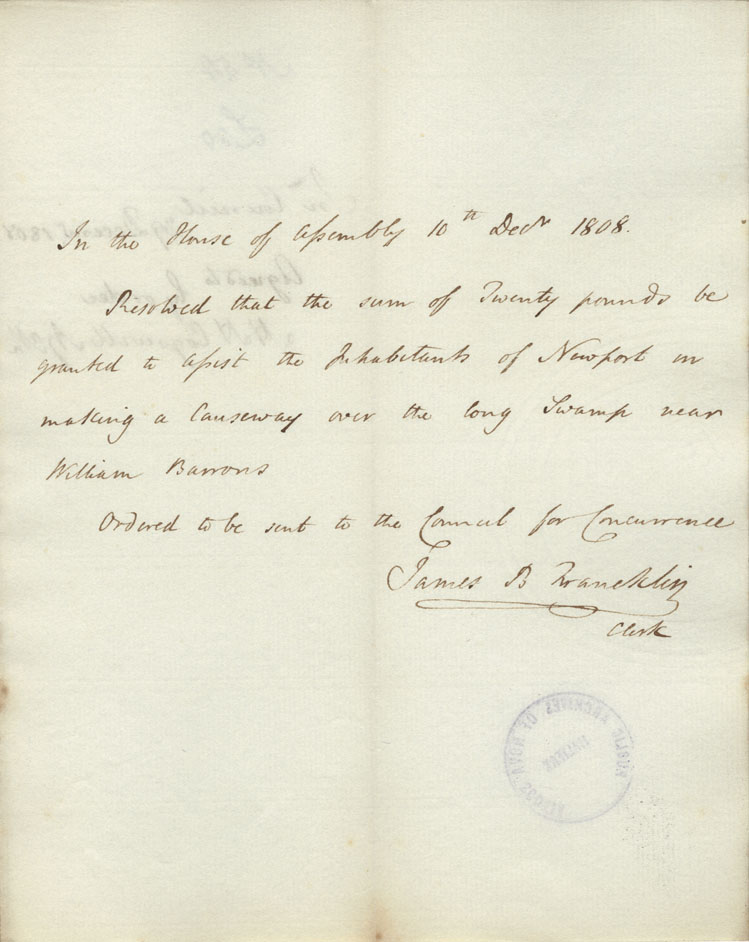 In the House of Assembly 10th Decr 1808.
Resolved that the sum of Twenty pounds be
granted to assist the Inhabitants of Newport in
making a Causeway over the long Swamp near
William Barrons
Ordered to be sent to the Council for Concurrence
James B Francklin
Clerk
PUBLIC ARCHIVES OF NOVA SCOTIA
HALIFAX